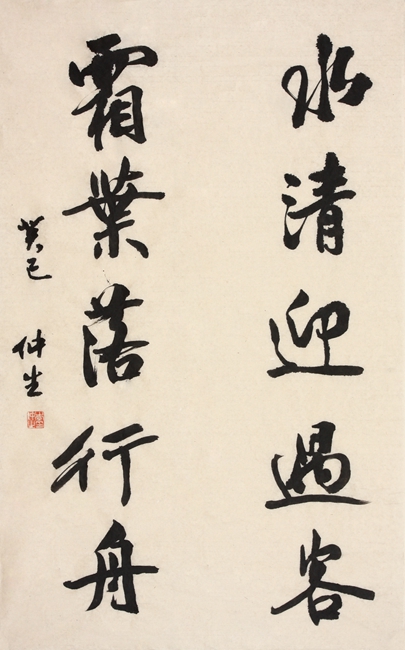 水清迎過客
霜葉落行舟
癸巳 仲生